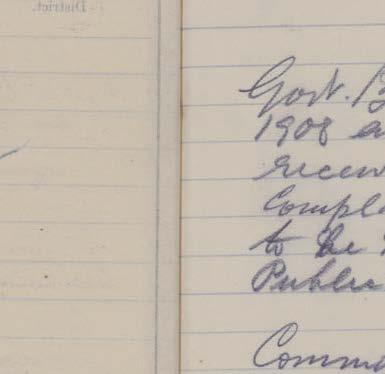 District.
Govt. B
1908 a
receiv
Compla
to be
Public
Comma